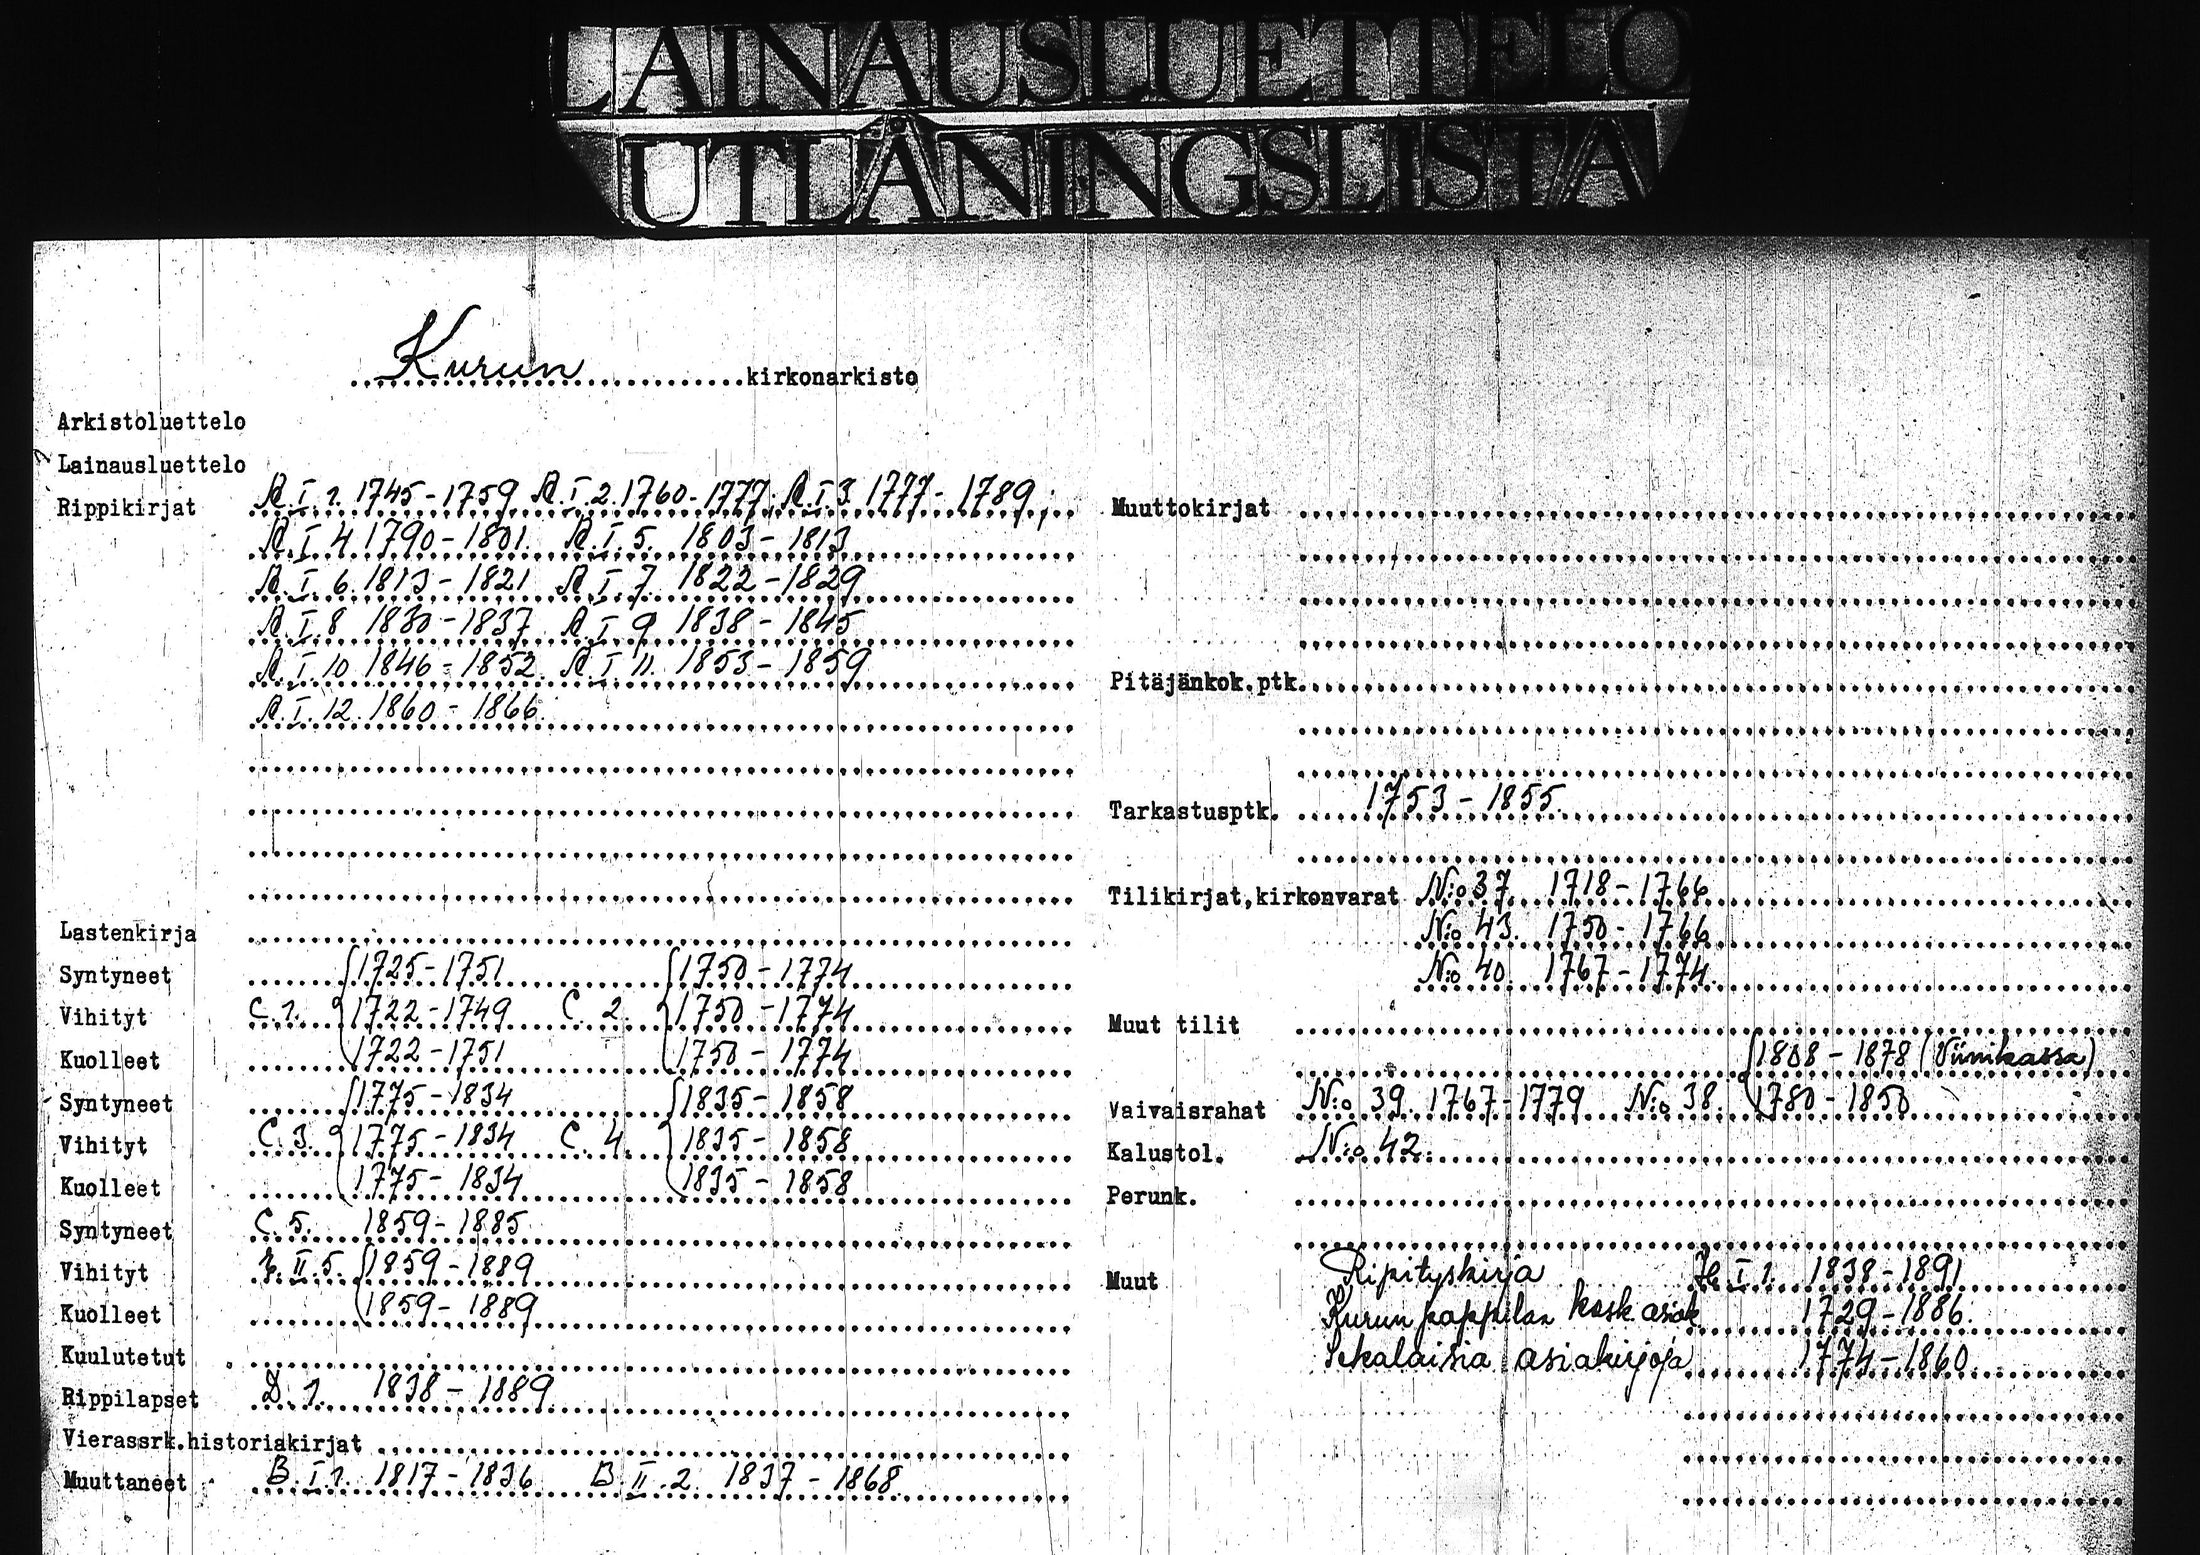 LAINAUSLUETTELO
UTLÅNINGSLISTA
Kurun kirkonarkisto
Arkistoluettelo
Lainausluettelo
Rippikirjat R.I.1. 1745-1759 R.I.2. 1760-1777; R.I.3. 1777-1789;
R.I.4 1790-1801. R.I.5. 1803-1813
R.I.6. 1813-1821 R.I.7. 1822-1829
R.I.8 1830-1837 R.I.9 1838-1845
R.I.10 1846-1852. R.I.11. 1853-1859
R.I.12. 1860-1866.
Lastenkirja
Syntyneet 1725-1751 1750-1774
Vihityt C.1. 1722-1749 C.2. 1750-1774
Kuolleet 1722-1751 1750-1774
Syntyneet 1775-1834 1835-1858
Vihityt C.3. 1775-1834 C.4. 1835-1858
Kuolleet 1775-1834 1835-1858
Syntyneet C.5. 1859-1885
Vihityt II.5. 1859-1889
Kuolleet 1859-1889
Kuulutetut
Rippilapset D.1. 1838-1889
Vierassrk.historiakirjat
Muuttaneet B.I.1. 1817-1836 B.II.2 1837-1868.
Muuttokirjat
Pitäjänkok.ptk.
Tarkastusptk. 1753-1855.
Tilikirjat,kirkonvarat N:o 37. 1718-1766
N:o 43. 1750-1766
N:o 40. 1767-1774.
Muut tilit
1808-1878 (Viinikassa)
Vaivaisrahat N:o 39. 1767-1779 N:o 38. 1780-1850
Kalustol. N:o 42.
Perunk.
Muut Ripityskirja I 1. 1838-1891
Kurun pappilan kosk. asiak 1729-1886.
Sekalaisia asiakirjoja 1774-1860.